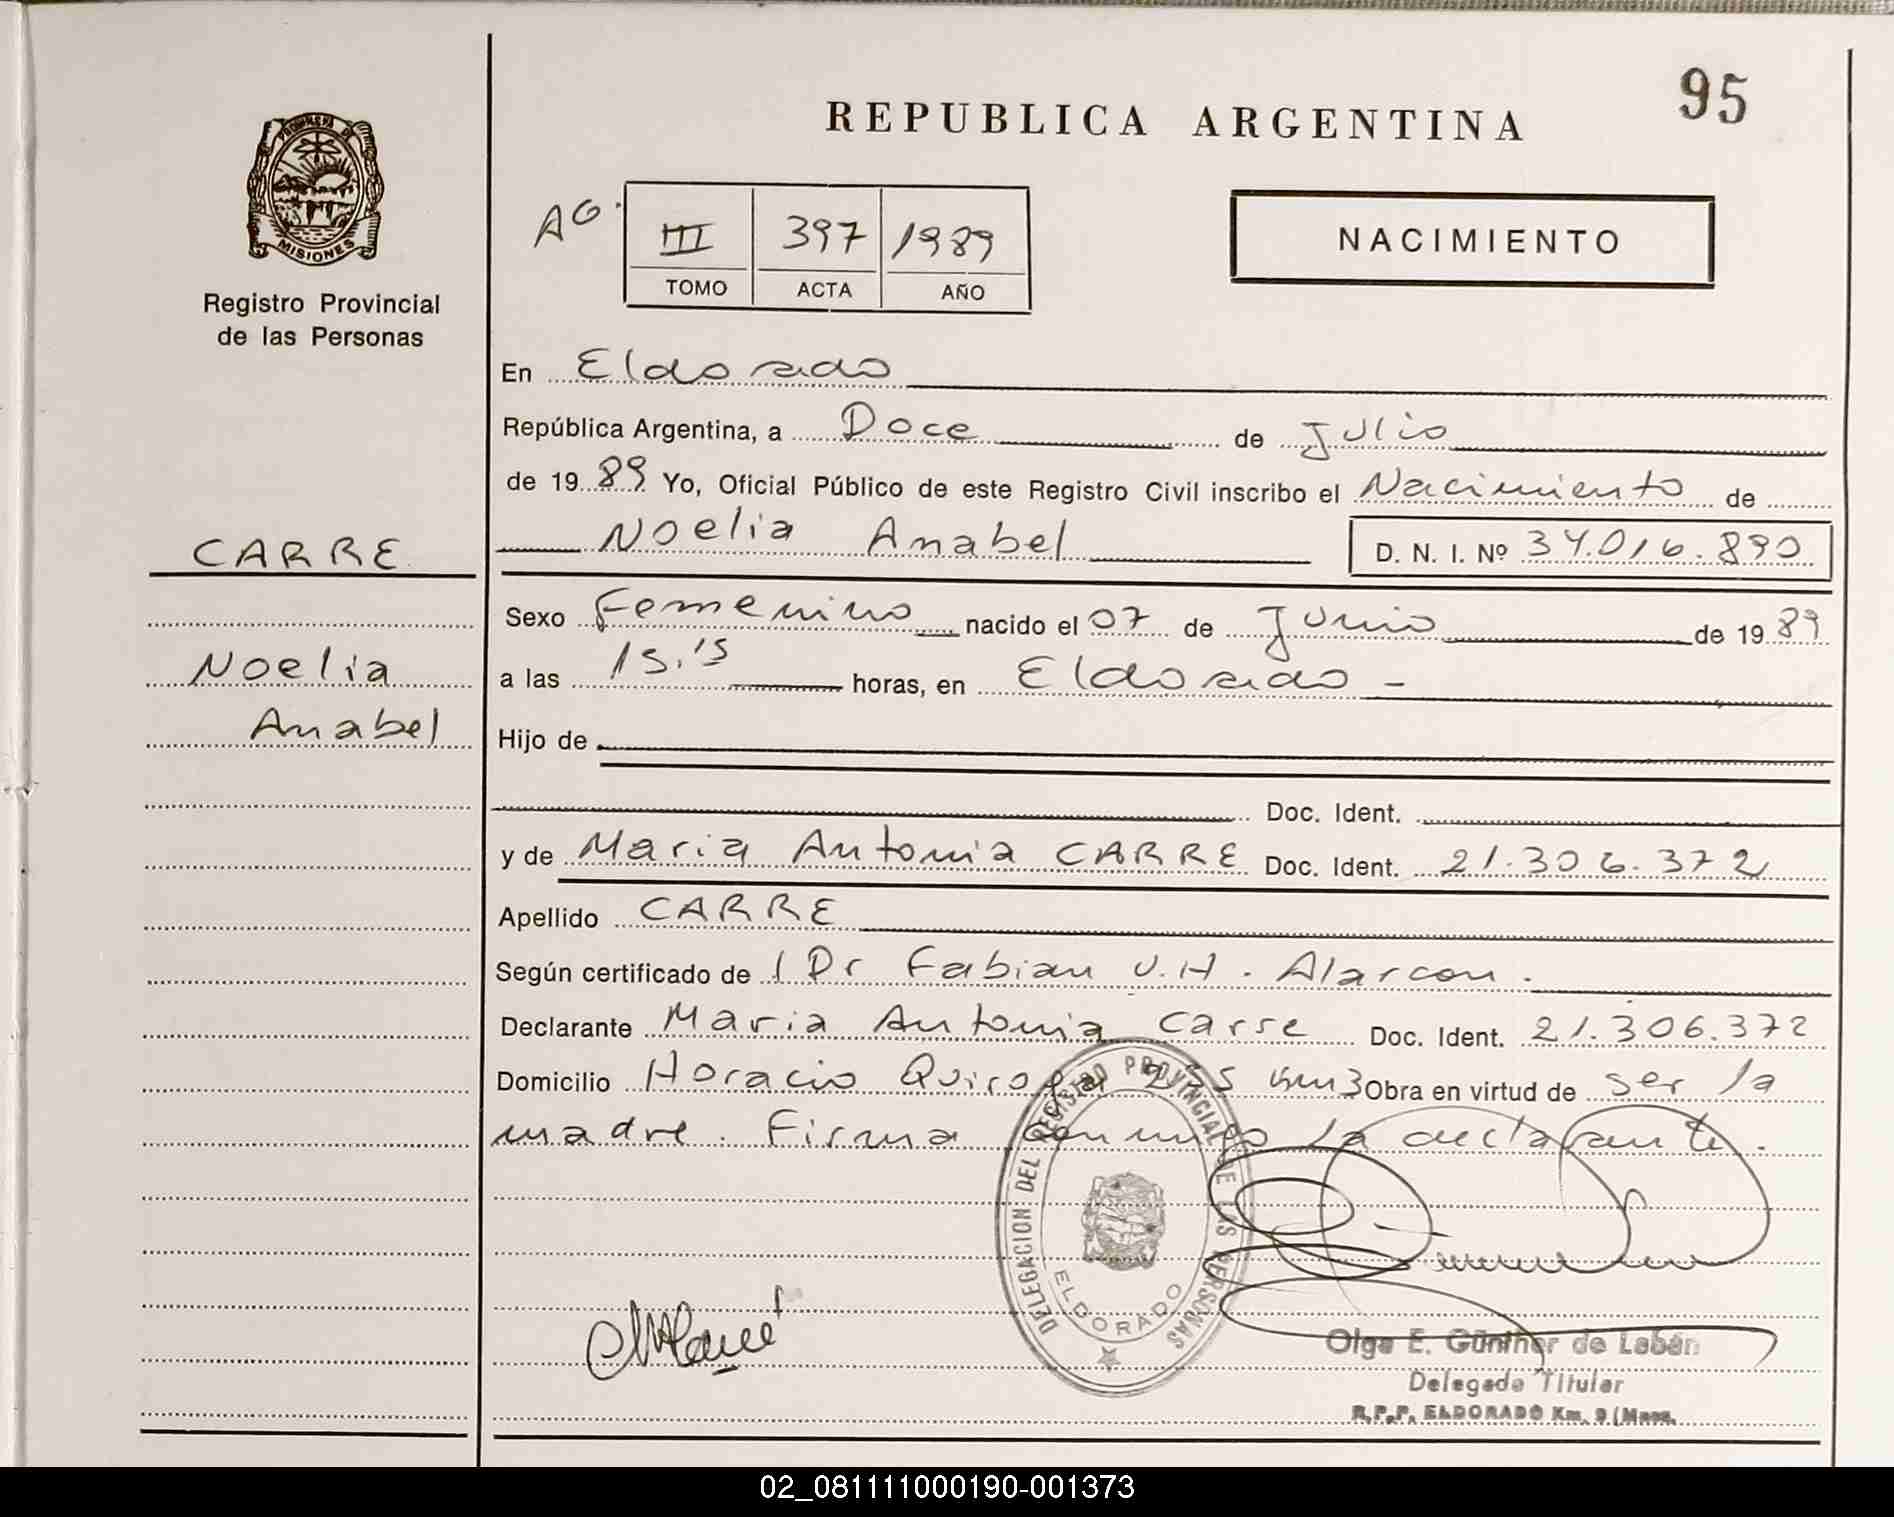 95
REPUBLICA ARGENTINA
PROVINCIA DE
MISIONES
Registro Provincial
de las Personas
AG.
III 397 1989
TOMO ACTA AÑO
NACIMIENTO
En Eldorado
República Argentina, a Doce de Julio
de 19 89 Yo, Oficial Público de este Registro Civil inscribo el Nacimiento de
Noelia Anabel D. N. I. Nº 34.016.890
CARRE
Noelia
Anabel
Sexo Femenino nacido el 07 de Junio de 19 89
a las 15.15 horas, en Eldorado -
Hijo de
Doc. Ident.
y de Maria Antonia CARRE Doc. Ident. 21.306.372
Apellido CARRE
Según certificado de Dr Fabian V.H. Alarcon.
Declarante Maria Antonia Carre Doc. Ident. 21.306.372
Domicilio Horacio Quiroga 255 km3 Obra en virtud de ser la
madre. Firma conmigo la declarante.
DELEGACION DEL REGISTRO PROVINCIAL DE LAS PERSONAS
ELDORADO
Olga E. Günther de Labán
Delegada Titular
R.P.P. ELDORADO Km. 9 (Mnes.
02_081111000190-001373